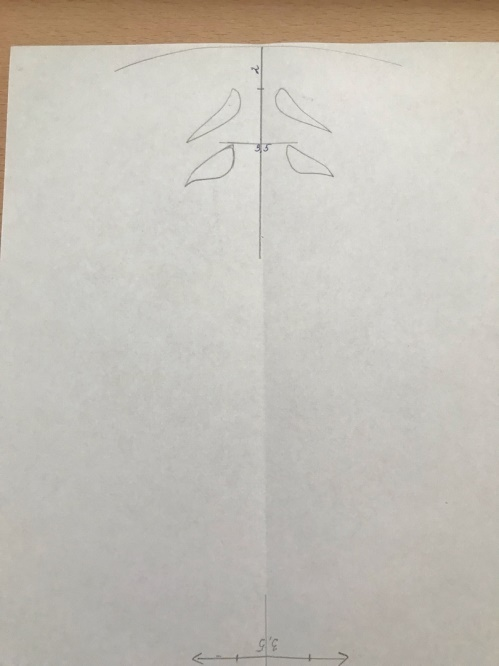 2
3,5
3,5